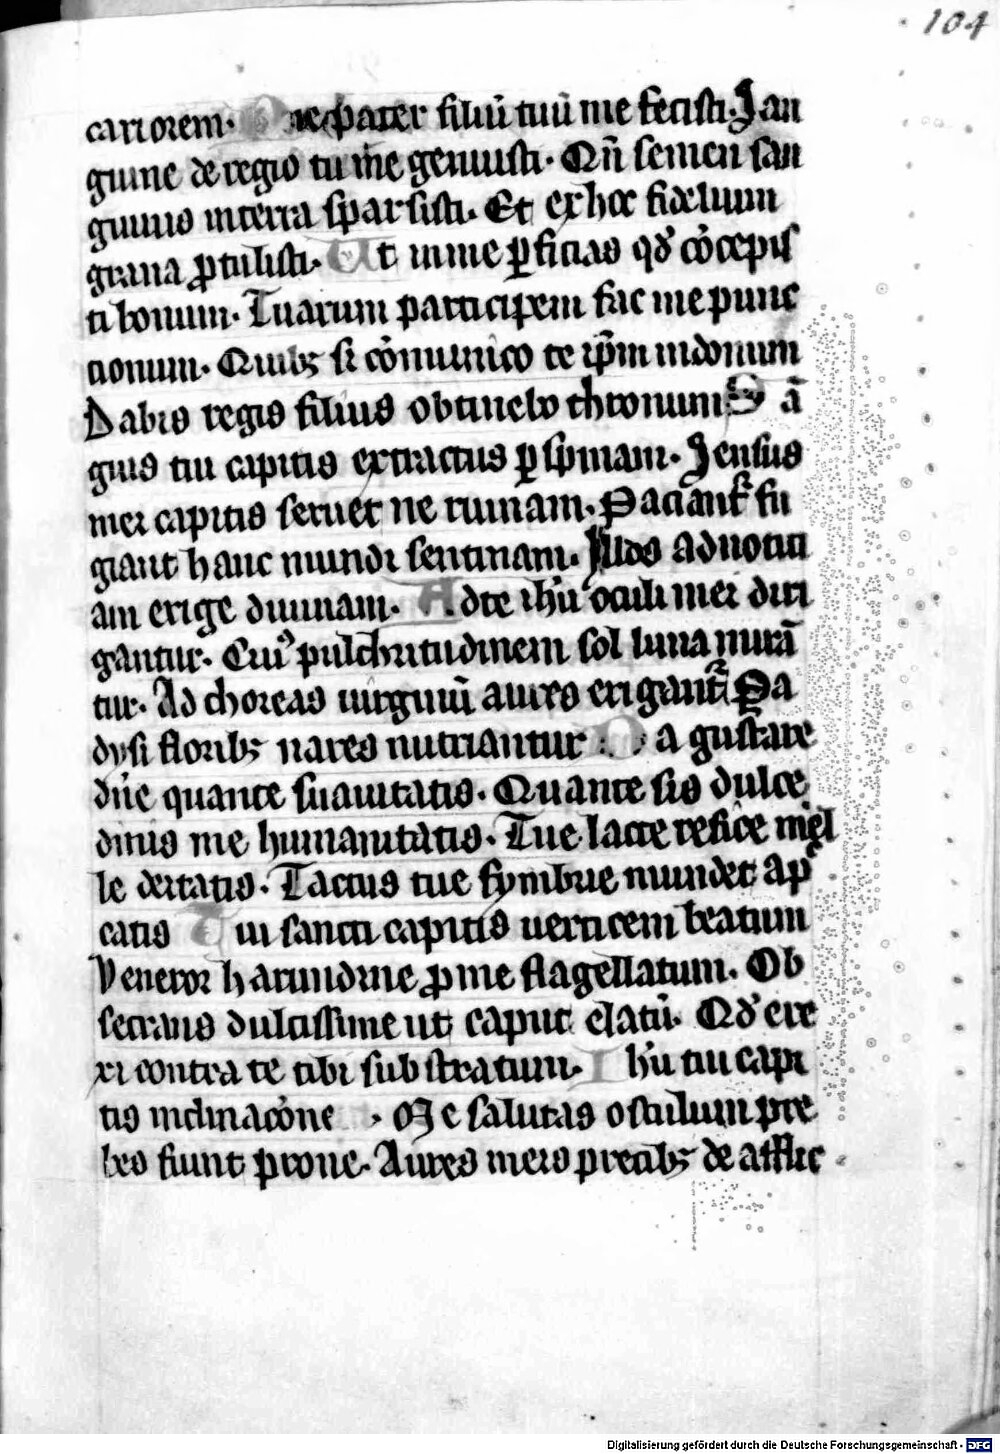 104
cariorem. pater filiū tuū me fecisti. San
guine de regio tu me genuisti. Qn̄ semen san
guinis in terra sparsisti. Et ex hoc fidelium
grana ꝓtulisti. Ut in me ꝑficias qd̓ cōcepis
ti bonum. Tuarum participem fac me punc
tionum. Quibꝫ si cōmunico te ip̄m in donum
Dabis regis filius obtinebo thronum. S ā
guis tui capitis extractus ꝑ spinam. Sensus
mei capitis seruet ne ruinam. Paciant᷑ fu
giant hanc mundi sentinam. Illos ad notici
am erige diuinam. Ad te ih̄u oculi mei diri
gantur. Cui᷒ pulchritudinem sol luna mirā
tur. Ad choreas uirginū aures erigant᷑ Pa
dysi floribꝫ nares nutriantur. Da gustare
dn̄e quante suauitatis. Quante sis dulce
dinis me humanitatis. Tue lacte refice mel
le deitatis. Tactus tue fymbrie mundet a p̄
catis Tui sancti capitis uerticem beatum
Veneror harundine ꝓ me flagellatum. Ob
secrans dulcissime ut caput elatū. Qd̓ ere
xi contra te tibi sub stratum. Ih̄u tui capi
tis inclinacōne Me salutas osculum pre
bes fiunt prone. Aures meis precibꝫ de afflic
Digitalisierung gefördert durch die Deutsche Forschungsgemeinschaft - DFG